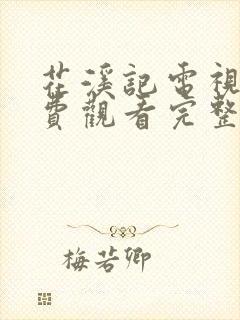 花溪記電視
費觀看完整
梅若卿